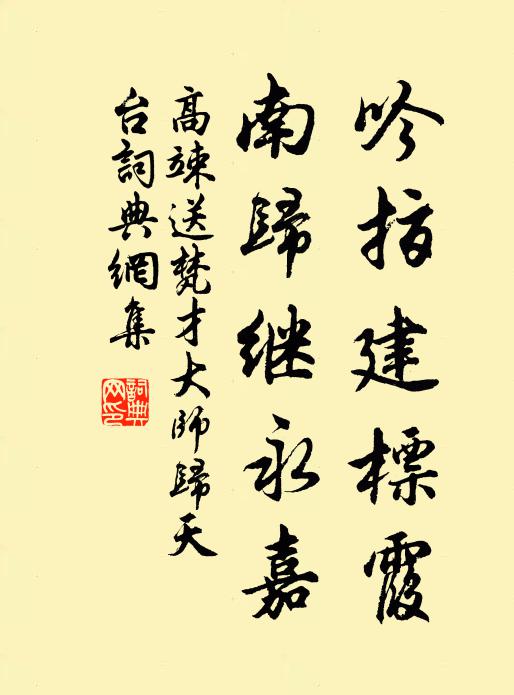 吟指建標霞
南歸继永嘉
高竦送梵才大師歸天
台詞典網集
詞典网印